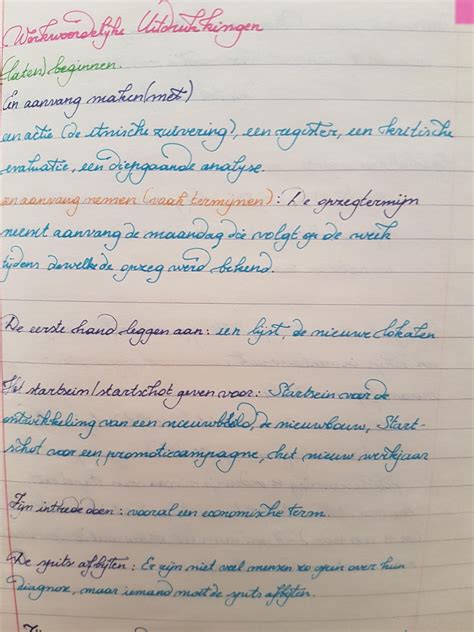 Werkwoordelijke Uitdrukkingen
(laten) beginnen.
Een aanvang maken (met)
een actie (de etnische zuivering), een register, een kritische
evaluatie, een diepgaande analyse.
een aanvang nemen (vaak termijnen): De opzegtermijn
neemt aanvang de maandag die volgt op de week
tijdens dewelke de opzeg werd bekend.
De eerste hand leggen aan: een lijst, de nieuwe lokalen
Het startsein/startschot geven voor: Startsein voor de
ontwikkeling van een nieuw de nieuwbouw, Start-
schot voor een promotiecampagne, het nieuw werkjaar
Zijn intrede doen: vooral een economische term.
De spits afbijten: Er zijn niet veel mensen zo open over hun
diagnose, maar iemand moet de spits afbijten.